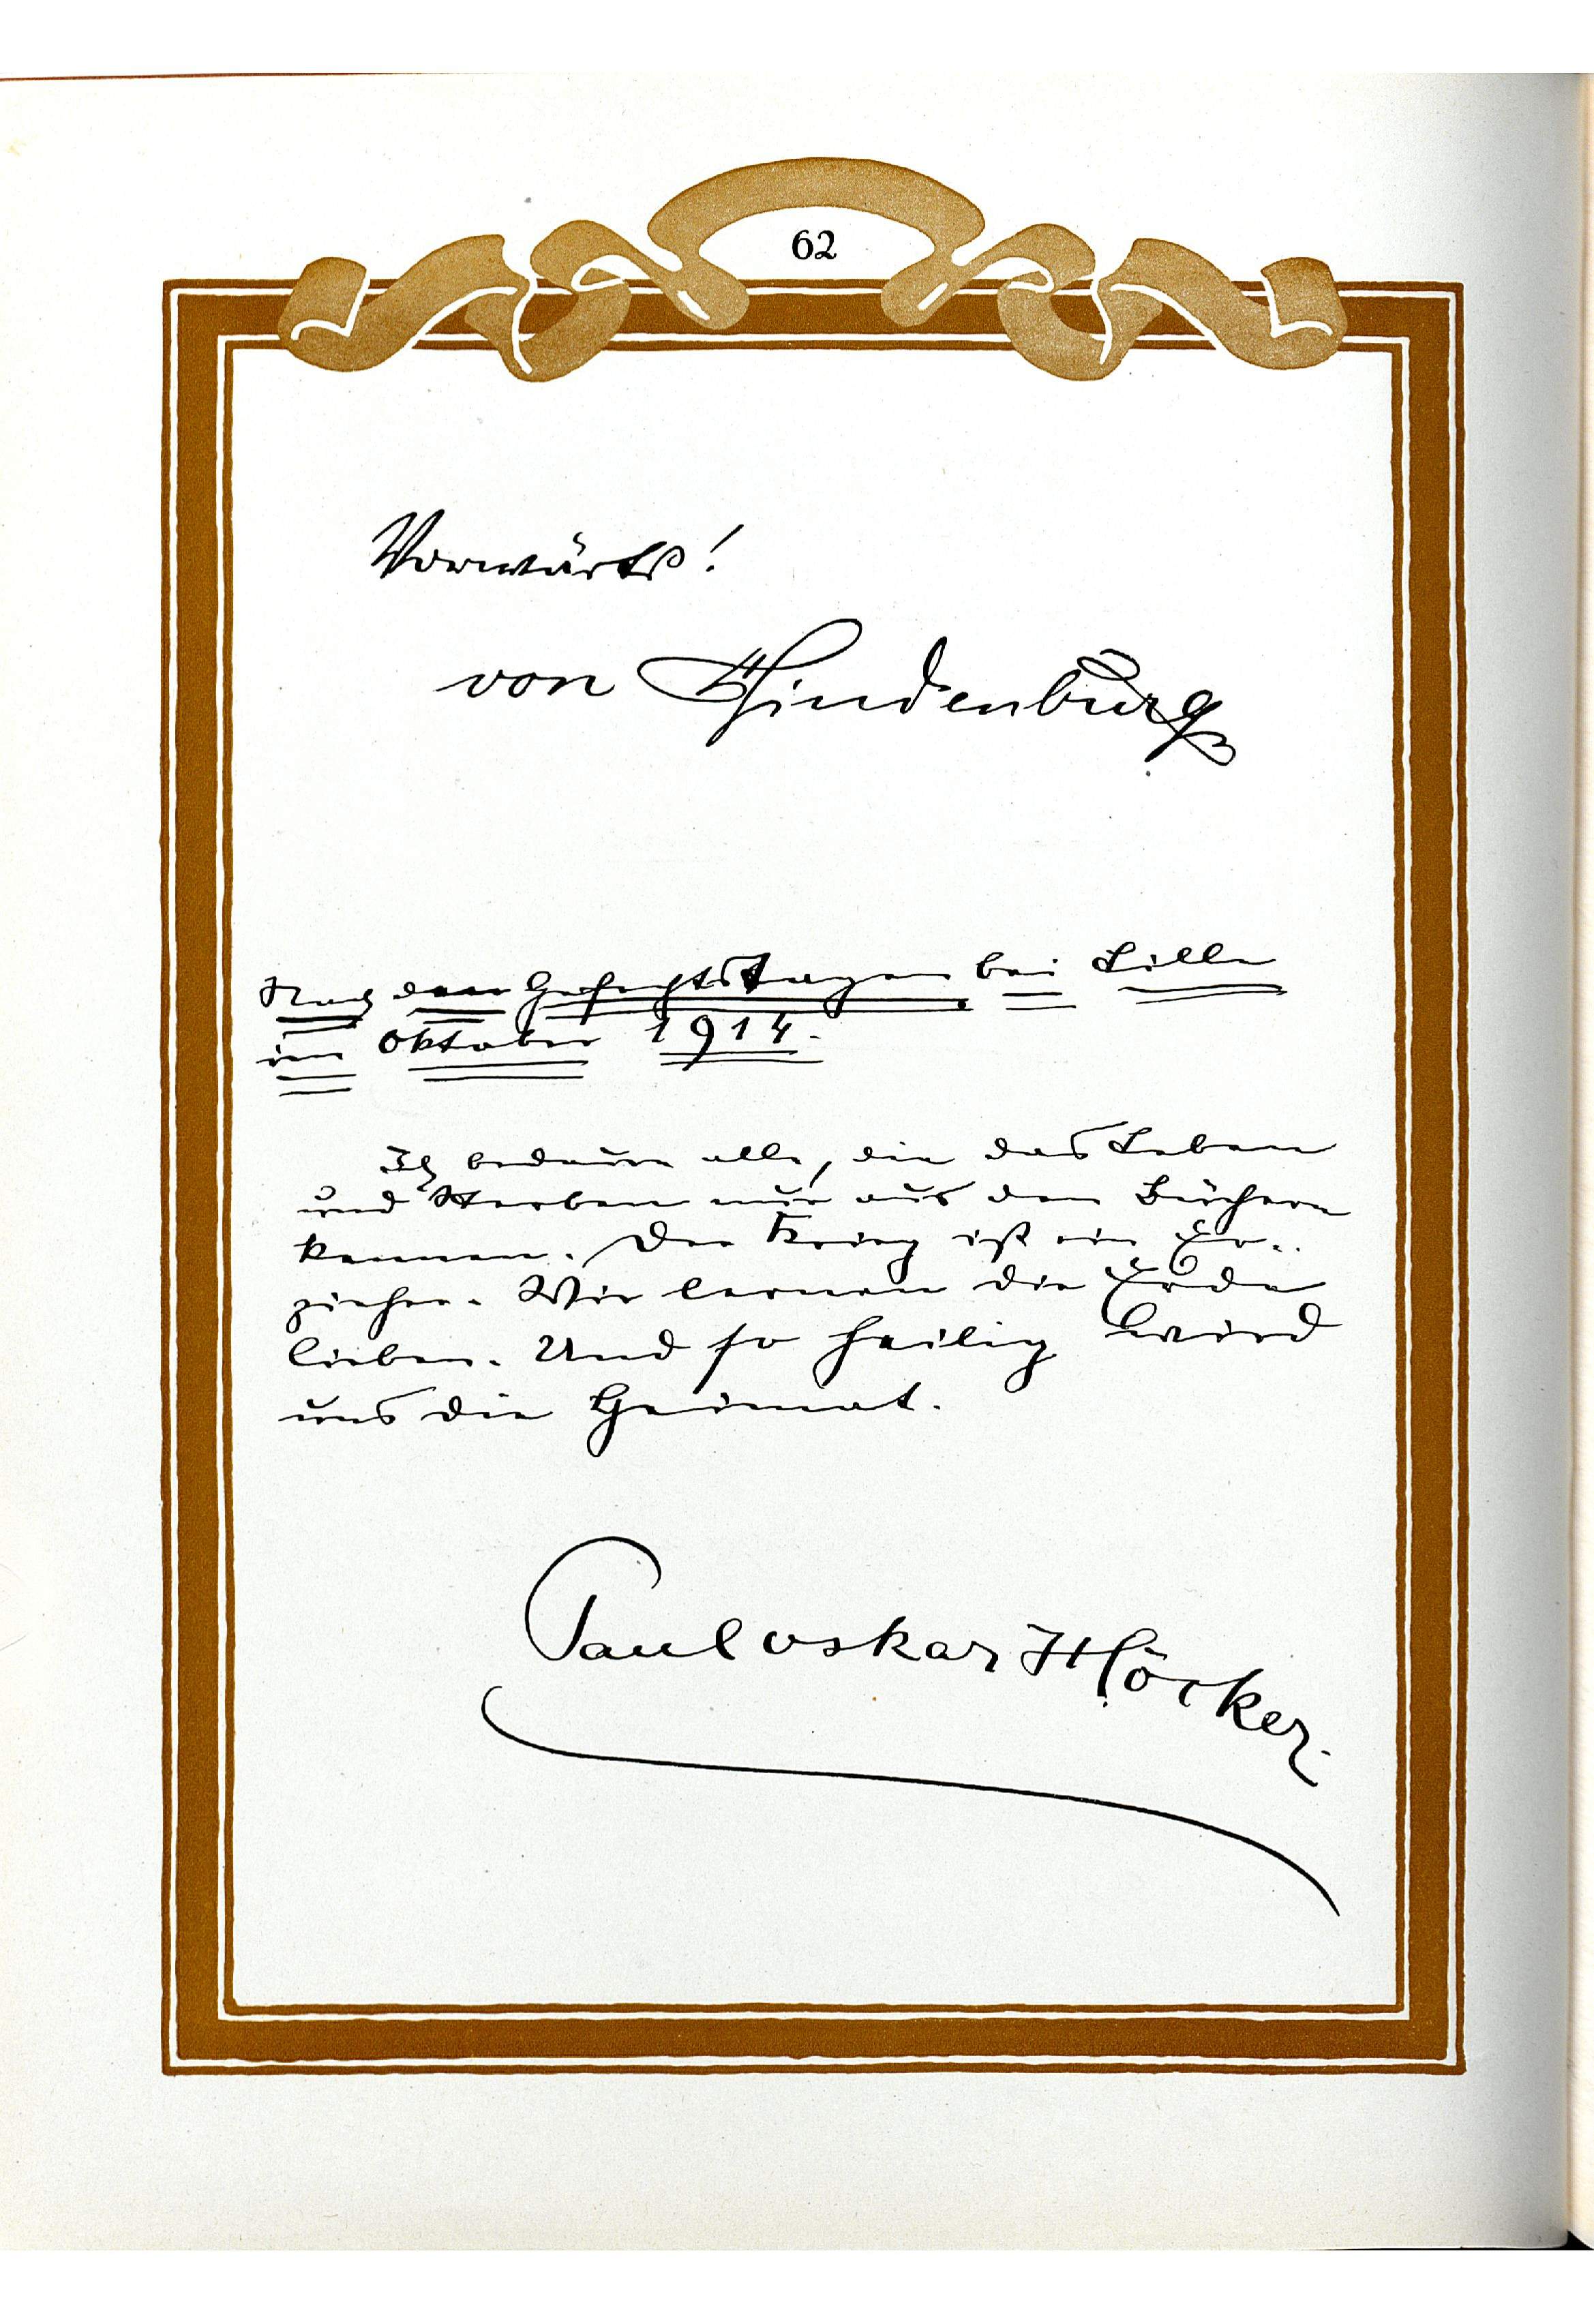 62
Vorwärts!
von Hindenburg
Nach den Gefechtstagen bei Lille
im Oktober 1914.
Ich bedaure alle, die das Leben
und Sterben nur aus den Büchern
kennen. Der Krieg ist ein Er-
zieher. Wir lernen die Erde
lieben. Und so heilig wird
uns die Heimat.
Paul Oskar Höcker.